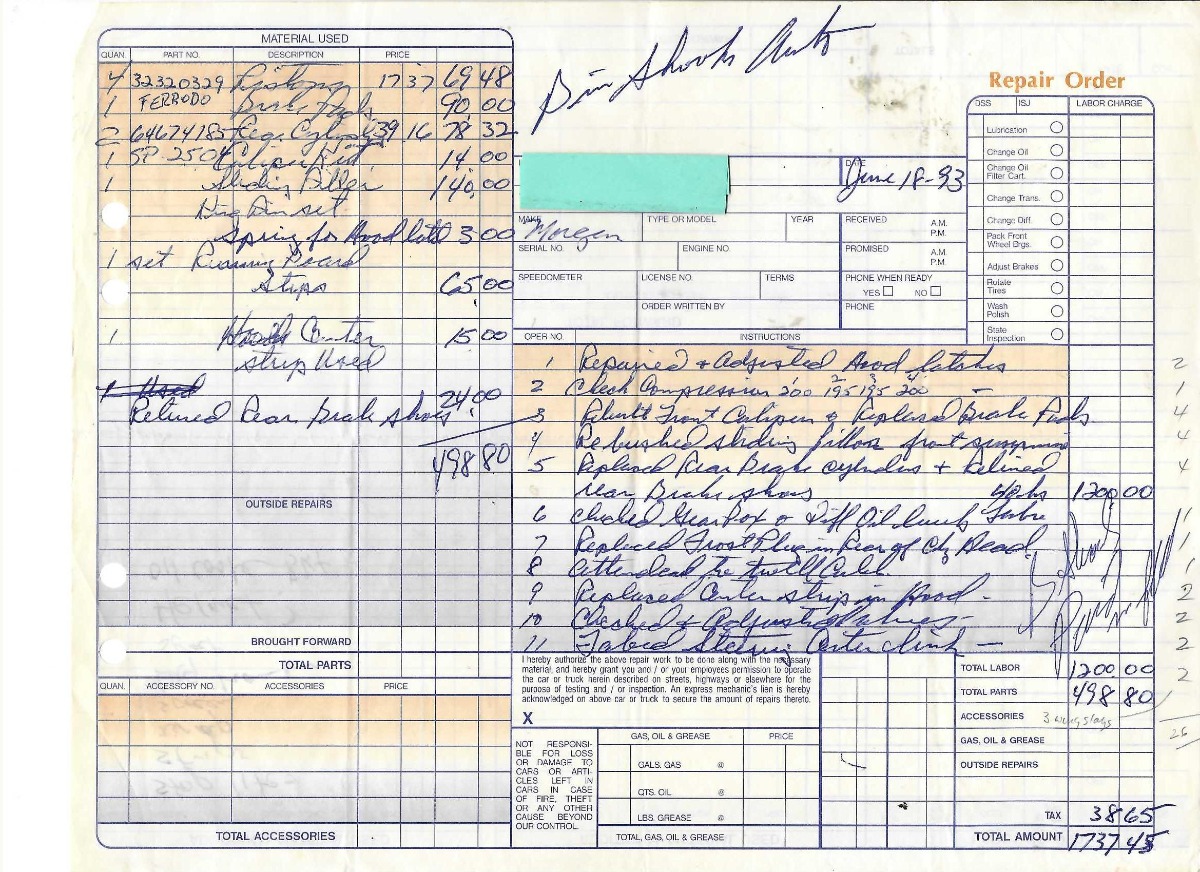 Shook Auto
MATERIAL USED
QUAN. PART NO. DESCRIPTION PRICE
4 32320329 Pistons 17 37 69 48
1 FERRODO Brake Pads 90 00
2 64674185 Cylinders 39 16 78 32
1 SP 2504 Caliper Kit 14 00
1 Sliding Piller 140,00
King Pin set
Spring for Hood latch 3 00
1 set Running Board
Strips 65 00
1 Hood Center 15 00
strip Used
1 Used
Relined Rear Brake Shoes 24 00
498 80
OUTSIDE REPAIRS
BROUGHT FORWARD
TOTAL PARTS
QUAN. ACCESSORY NO. ACCESSORIES PRICE
TOTAL ACCESSORIES
DATE
June 18-93
MAKE Morgan TYPE OR MODEL YEAR RECEIVED A.M. P.M.
SERIAL NO. ENGINE NO. PROMISED A.M. P.M.
SPEEDOMETER LICENSE NO. TERMS PHONE WHEN READY
YES NO
ORDER WRITTEN BY PHONE
Repair Order
DSS ISJ LABOR CHARGE
Lubrication
Change Oil
Change Oil Filter Cart.
Change Trans.
Change Diff.
Pack Front Wheel Brgs.
Adjust Brakes
Rotate Tires
Wash Polish
State Inspection
OPER NO. INSTRUCTIONS
1 Repaired & Adjusted Hood latches 2
2 Check Compression 1 200 2 195 3 195 4 200 — 1
3 Rebuilt Front Calipers & Replaced Brake Pads 4
4 Rebushed sliding pillars front suspension 4
5 Replaced Rear Brake cylinders & Relined 4
rear Brake shoes 1200,00
6 Checked Gear Box & Diff Oil 1
7 Replaced Frost Plug in Rear of Cy Head 1
8 1
9 Replaced Center strip in Hood - 2
10 Checked & Adjusted Valves - 2
11 Steering Center — 2
2
26
I hereby authorize the above repair work to be done along with the necessary
material, and hereby grant you and / or your employees permission to operate
the car or truck herein described on streets, highways or elsewhere for the
purposa of testing and / or inspection. An express mechanic's lien is hereby
acknowledged on above car or truck to secure the amount of repairs thereto.
X
NOT RESPONSI-
BLE FOR LOSS
OR DAMAGE TO
CARS OR ARTI-
CLES LEFT IN
CARS IN CASE
OF FIRE, THEFT
OR ANY OTHER
CAUSE BEYOND
OUR CONTROL.
GAS, OIL & GREASE PRICE
GALS. GAS @
QTS. OIL @
LBS. GREASE @
TOTAL, GAS, OIL & GREASE
TOTAL LABOR 1200 00
TOTAL PARTS 498 80
ACCESSORIES 3
GAS, OIL & GREASE
OUTSIDE REPAIRS
TAX 38 65
TOTAL AMOUNT 1737 45